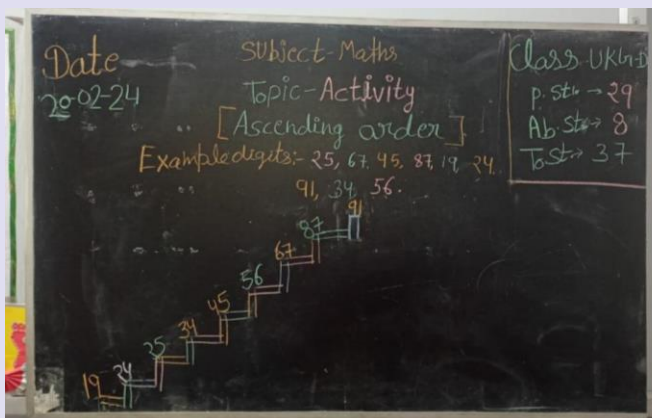 Date
20-02-24
Subject-Maths
Topic-Activity
[Ascending order]
Example digits:- 25, 67, 45, 87, 19, 24,
91, 34, 56.
Class-UKG-D
P. St. → 29
Ab. St → 8
To. St. → 37
91
87
67
56
45
34
25
24
19